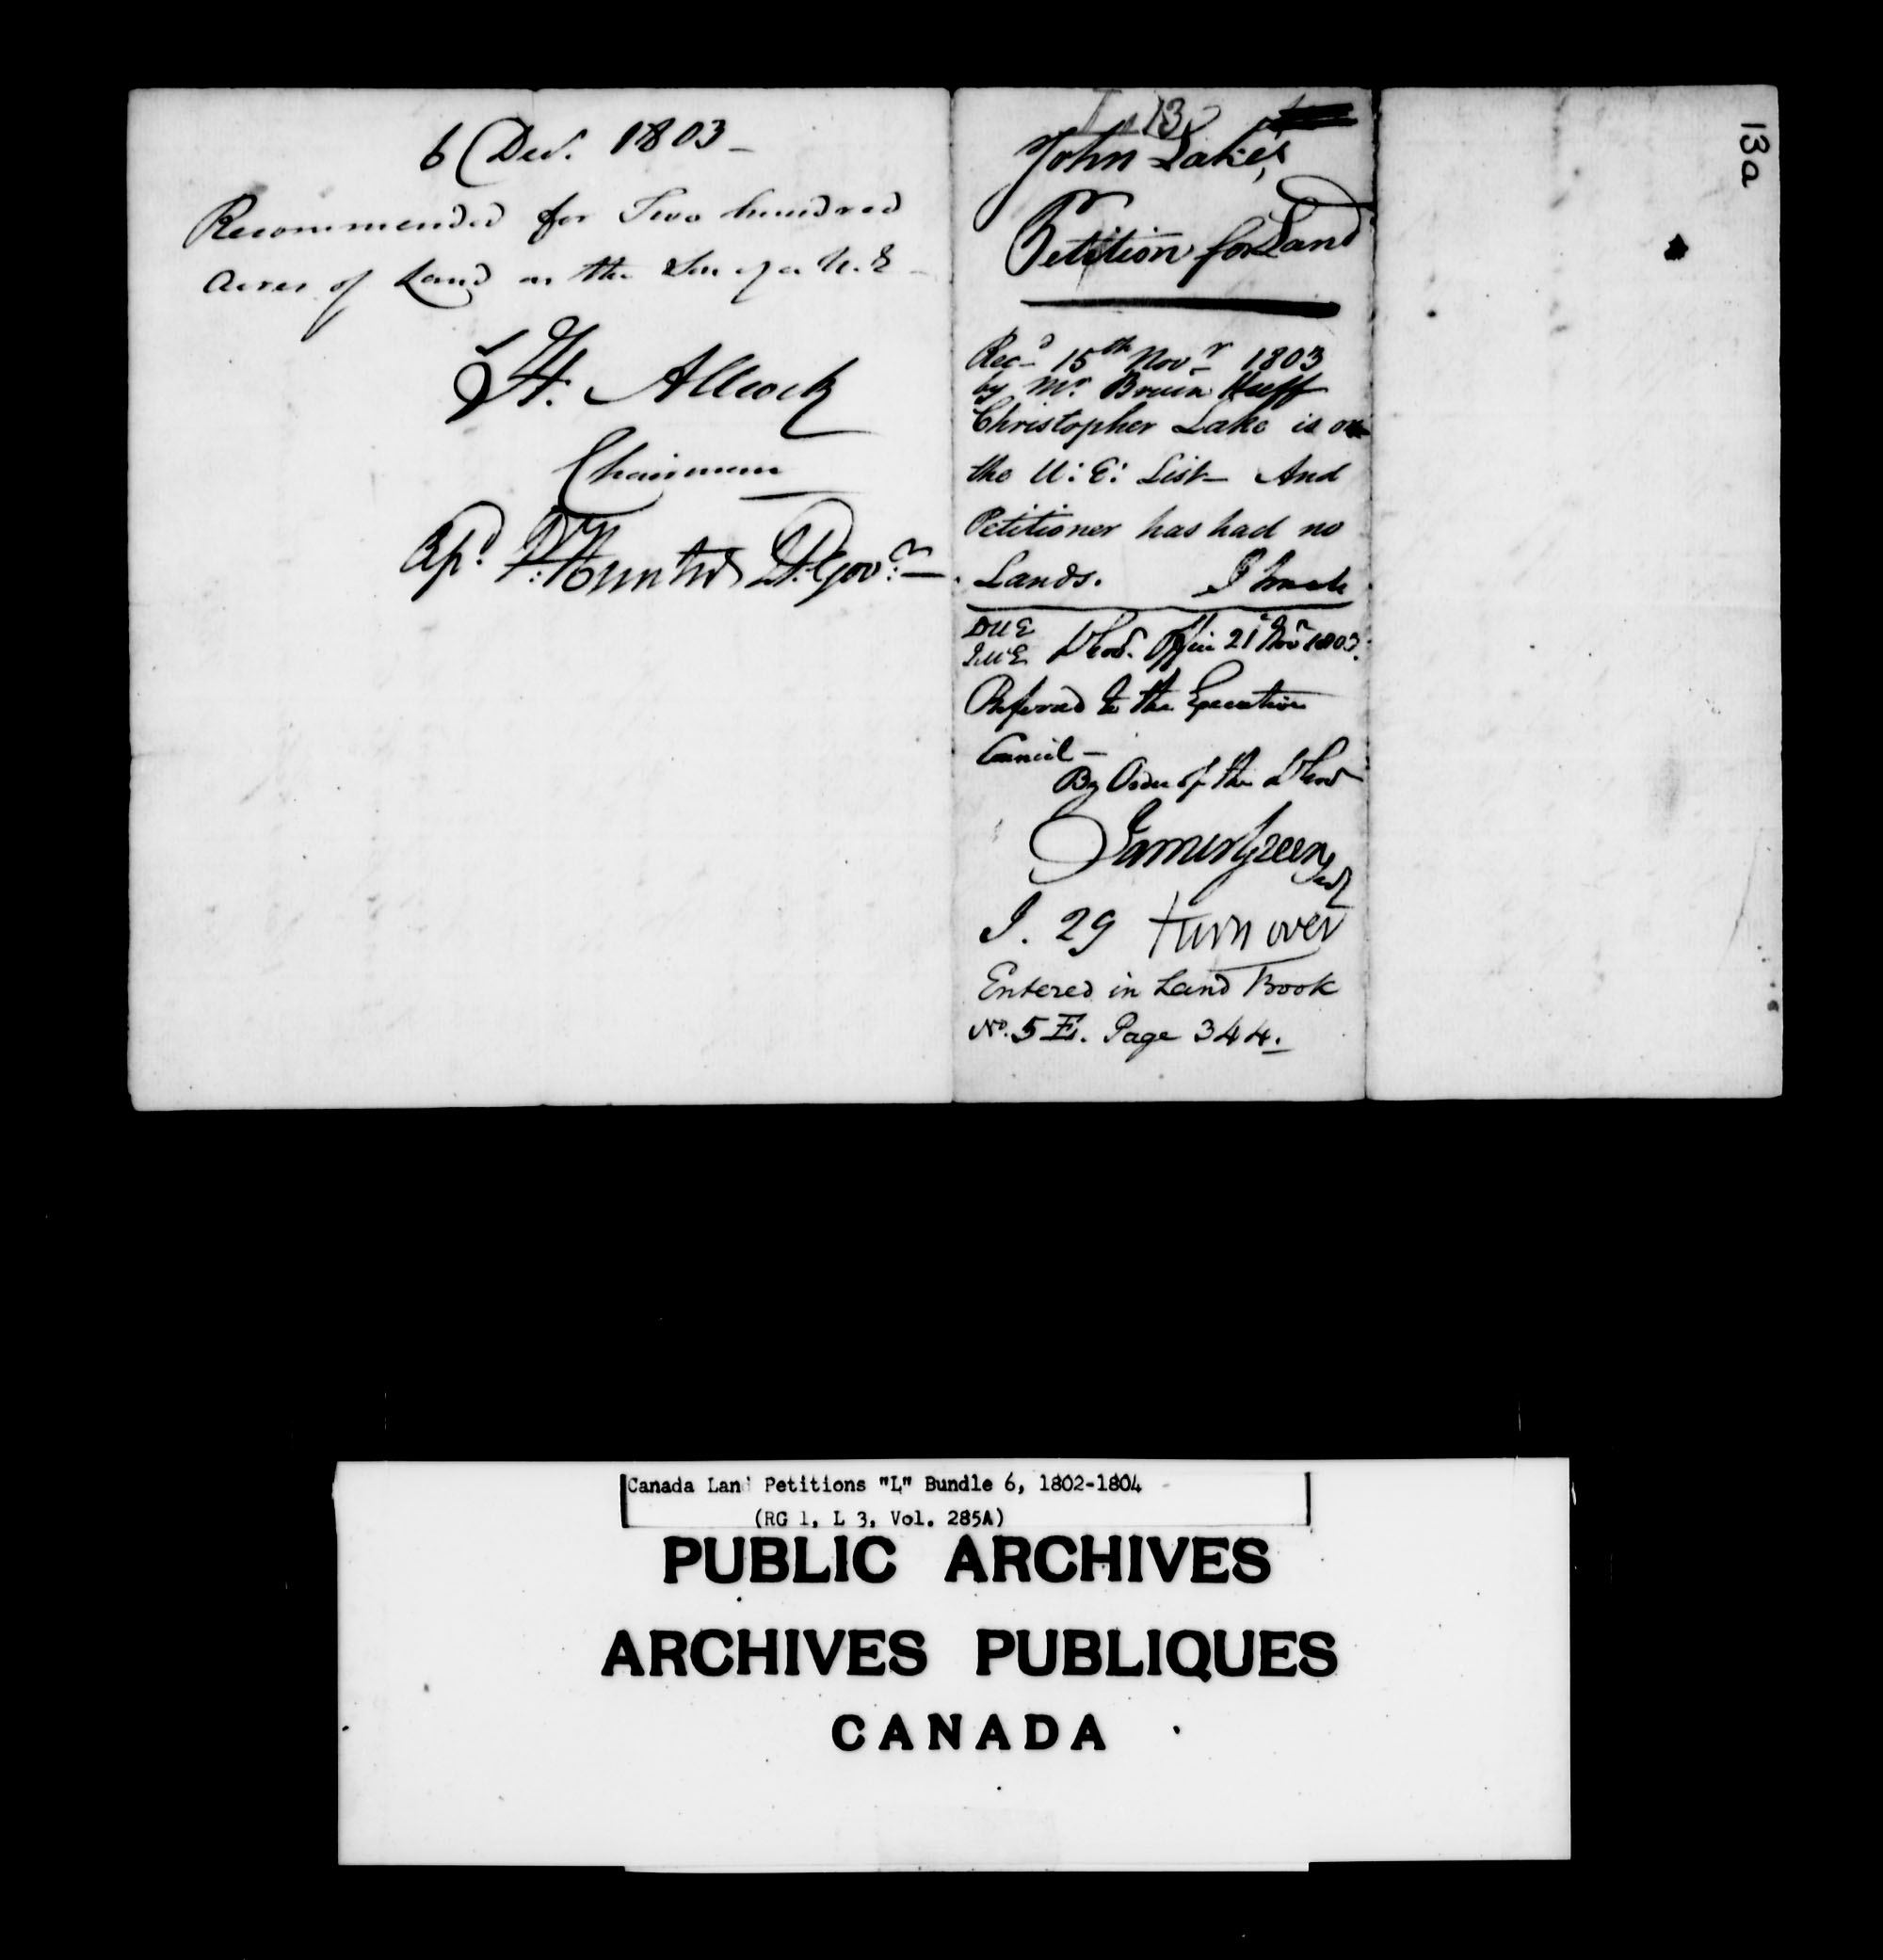 6 Decr. 1803 -
Recommended for Two hundred
Acres of Land as the Son of a U. E -
H. Allcock
Chairman
Apd P: Hunter Lt. Govr. -
13
John Lake's
Petition for Land
Recd 15th Novr 1803
by Mr. Bruin Huff
Christopher Lake is on
the U: E: List - And
Petitioner has had no
Lands. J Small
DUE
SUE Lt Gov. Office 21st Novr 1803.
Referred to the Executive
Council -
By Order of the Lt Govr
James Green
Secy
J. 29 turn over
Entered in Land Book
No. 5 E. Page 344.
13a
Canada Land Petitions "L" Bundle 6, 1802-1804
(RG 1, L 3, Vol. 285A)
PUBLIC ARCHIVES
ARCHIVES PUBLIQUES
CANADA